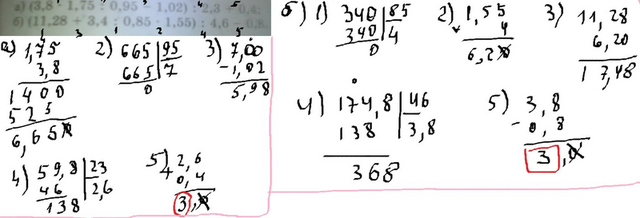 а) (3,8 · 1,75 : 0,95 - 1,02) : 2,3 + 0,4;
б) (11,28 + 3,4 : 0,85 · 1,55) : 4,6 - 0,8.
а) 1) 1,75
3,8
1400
525
6,650
2) 665 95
665 7
0
3) 7,00
-1,02
5,98
4) 59,8 23
46 2,6
138
5) 2,6
+ 0,4
3,0
б) 1) 340 85
340 4
0
2) 1,55
× 4
6,20
3) 11,28
6,20
17,48
4) 174,8 46
138 3,8
368
5) 3,8
- 0,8
3,0